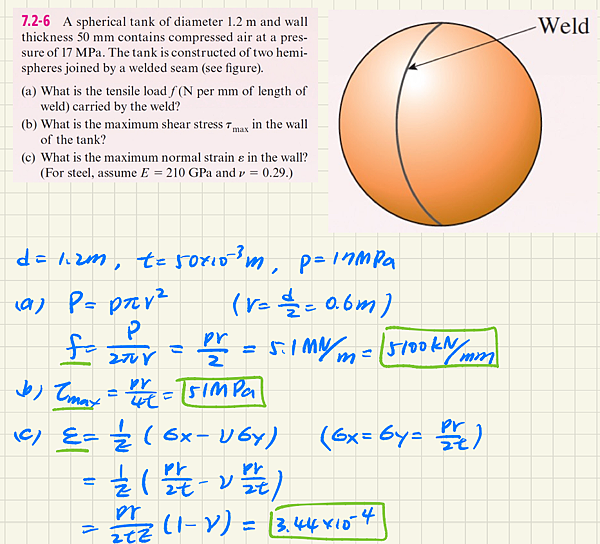 7.2-6 A spherical tank of diameter 1.2 m and wall
thickness 50 mm contains compressed air at a pres-
sure of 17 MPa. The tank is constructed of two hemi-
spheres joined by a welded seam (see figure).
(a) What is the tensile load f (N per mm of length of
weld) carried by the weld?
(b) What is the maximum shear stress τmax in the wall
of the tank?
(c) What is the maximum normal strain ε in the wall?
(For steel, assume E = 210 GPa and ν = 0.29.)
Weld
d = 1.2m, t = 50×10⁻³m, p = 17MPa
(a) P = pπr² (r = d/2 = 0.6m)
f = P/2πr = pr/2 = 5.1 MN/m = 5100 kN/mm
(b) τmax = pr/4t = 51MPa
(c) ε = 1/E (σx - νσy) (σx = σy = pr/2t)
= 1/E (pr/2t - ν pr/2t)
= pr/2tE (1-ν) = 3.44×10⁻⁴